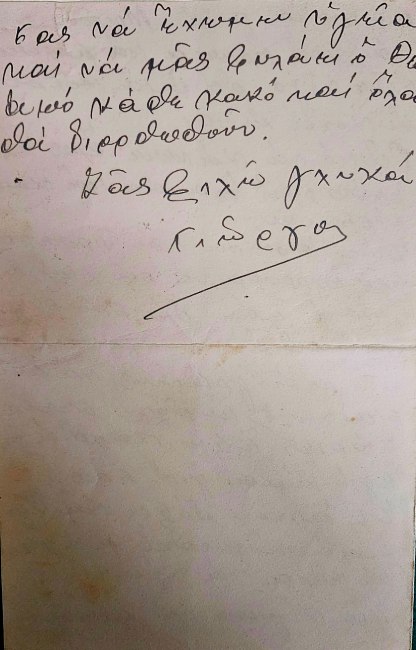 σας νά ἔχωμεν ὑγεία
καί νά μᾶς φυλάει ὁ Θε
ἀπό κάθε κακό καί ὅλα
θά διορθωθοῦν.
Σᾶς φιλῶ γλυκά
Γιῶργος